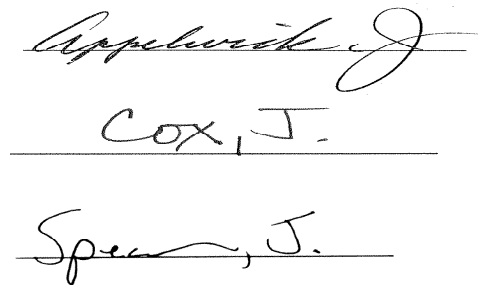 Appelwick, J.
Cox, J.
Spearman, J.